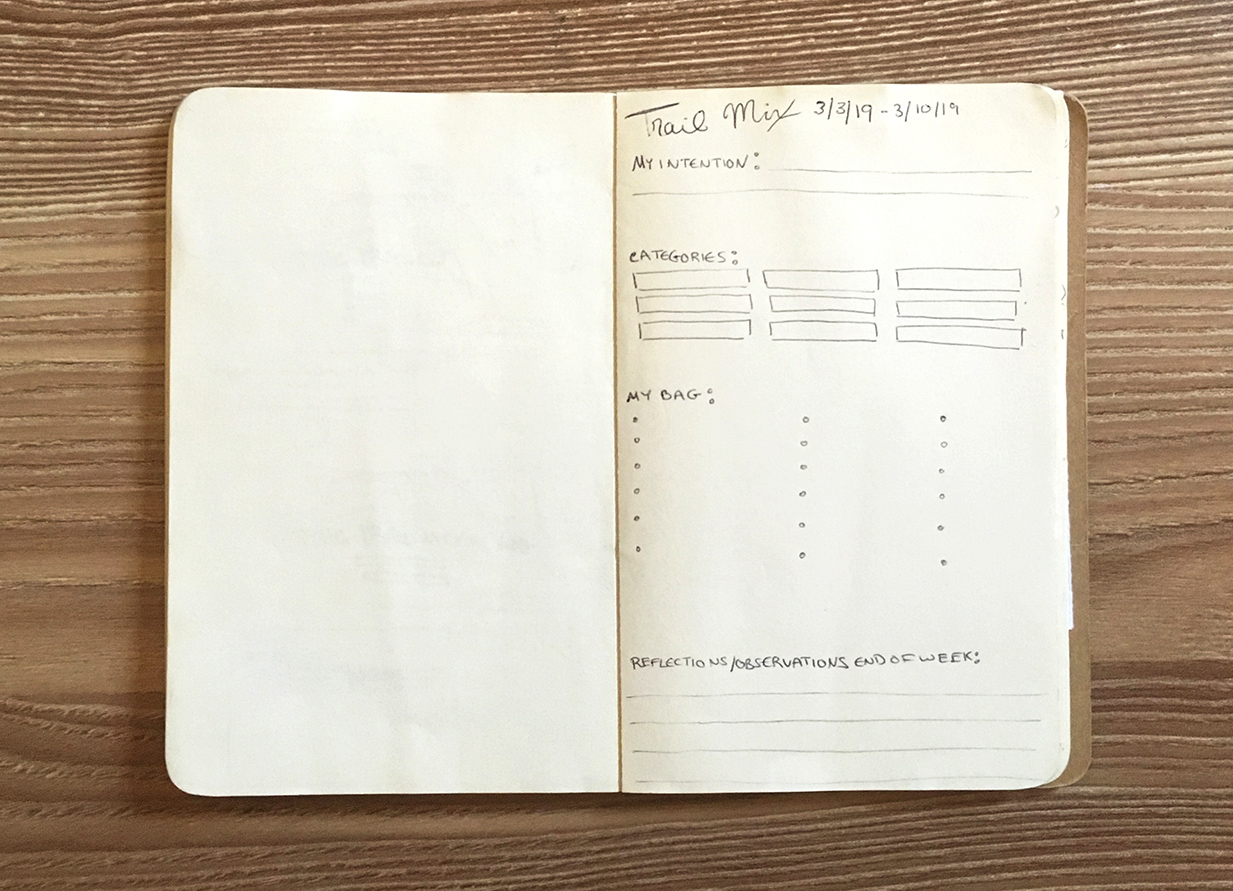 Trail Mix 3/3/19 - 3/10/19
MY INTENTION:
CATEGORIES:
MY BAG:
REFLECTIONS/OBSERVATIONS END OF WEEK: